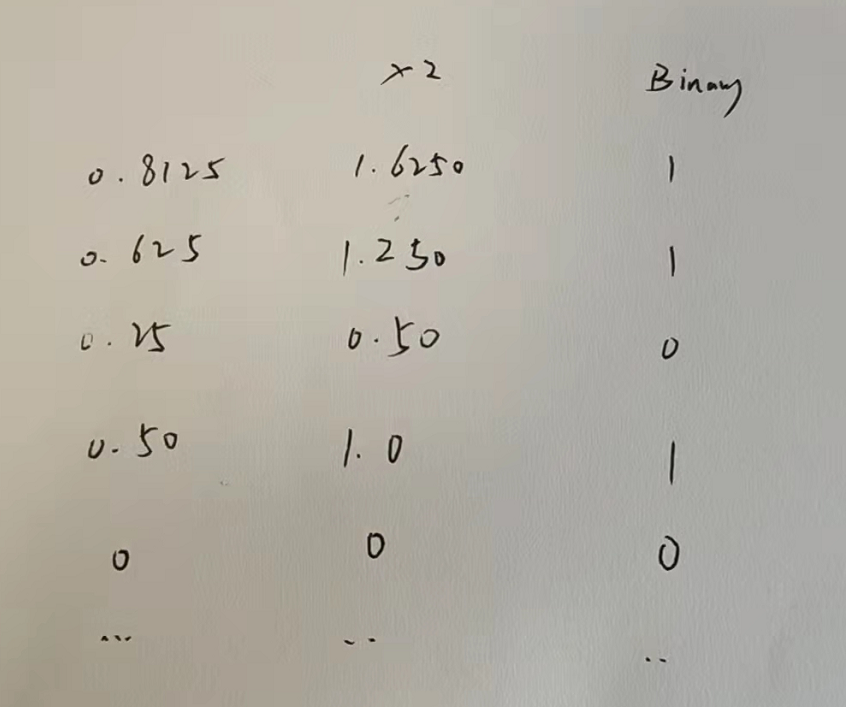 ×2 Binary
0.8125 1.6250 1
0.625 1.250 1
0.25 0.50 0
0.50 1.0 1
0 0 0
... .. ..